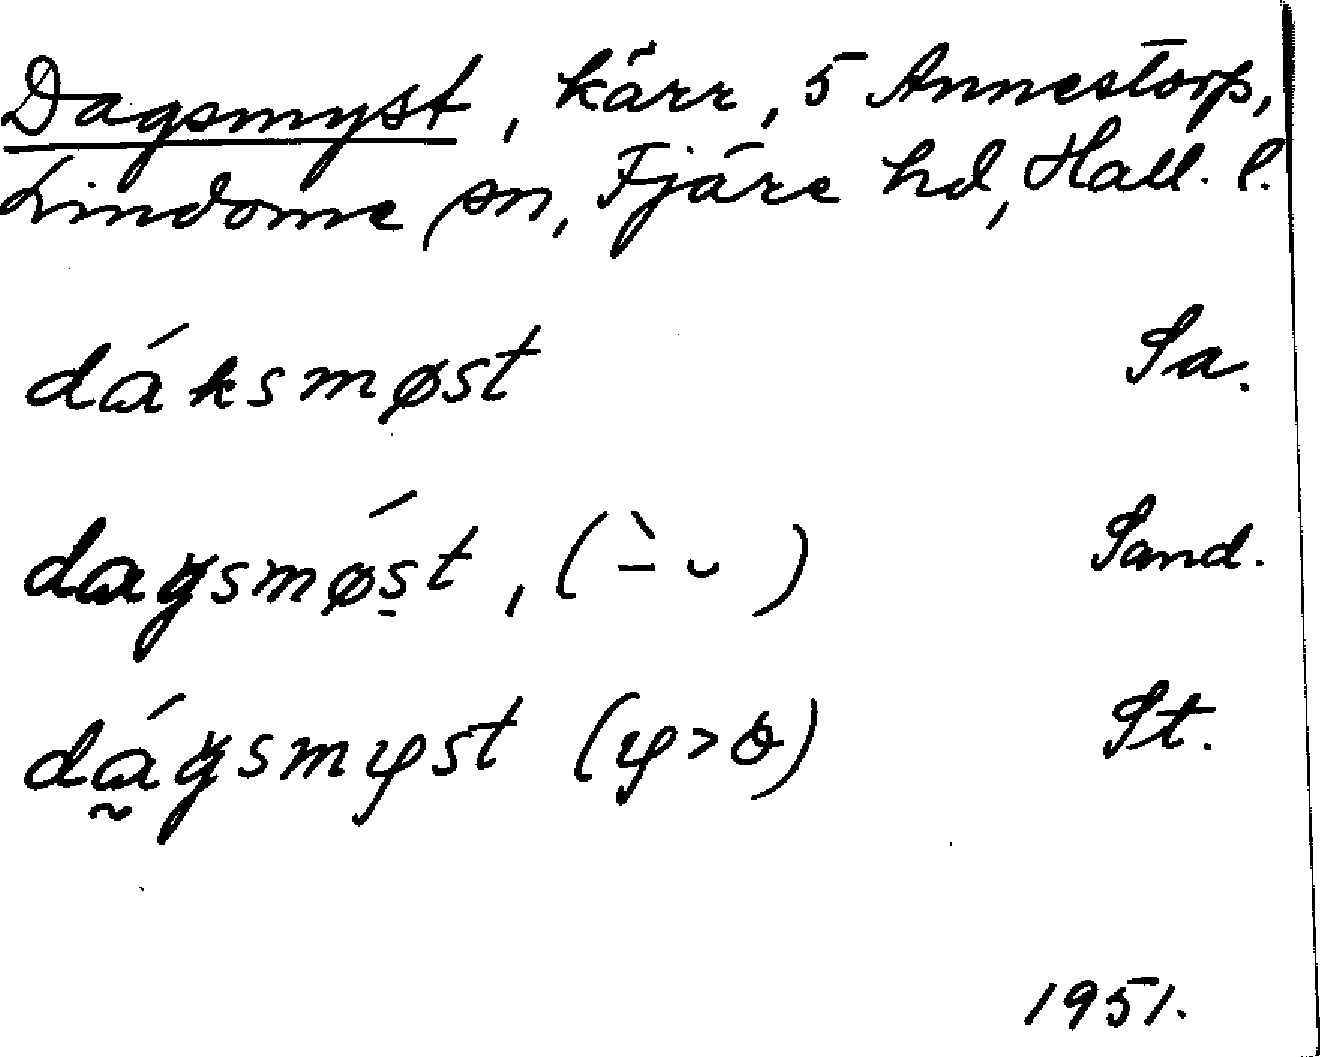 Dagsmyst, kärr, 5 Annestorp,
Lindome sn, Fjäre hd, Hall. l.
dáksmøst Sa.
dagsmǿs̱t, (-̀ ⌣) Sand.
dá̰gsmyst (y>ø) St.
1951.